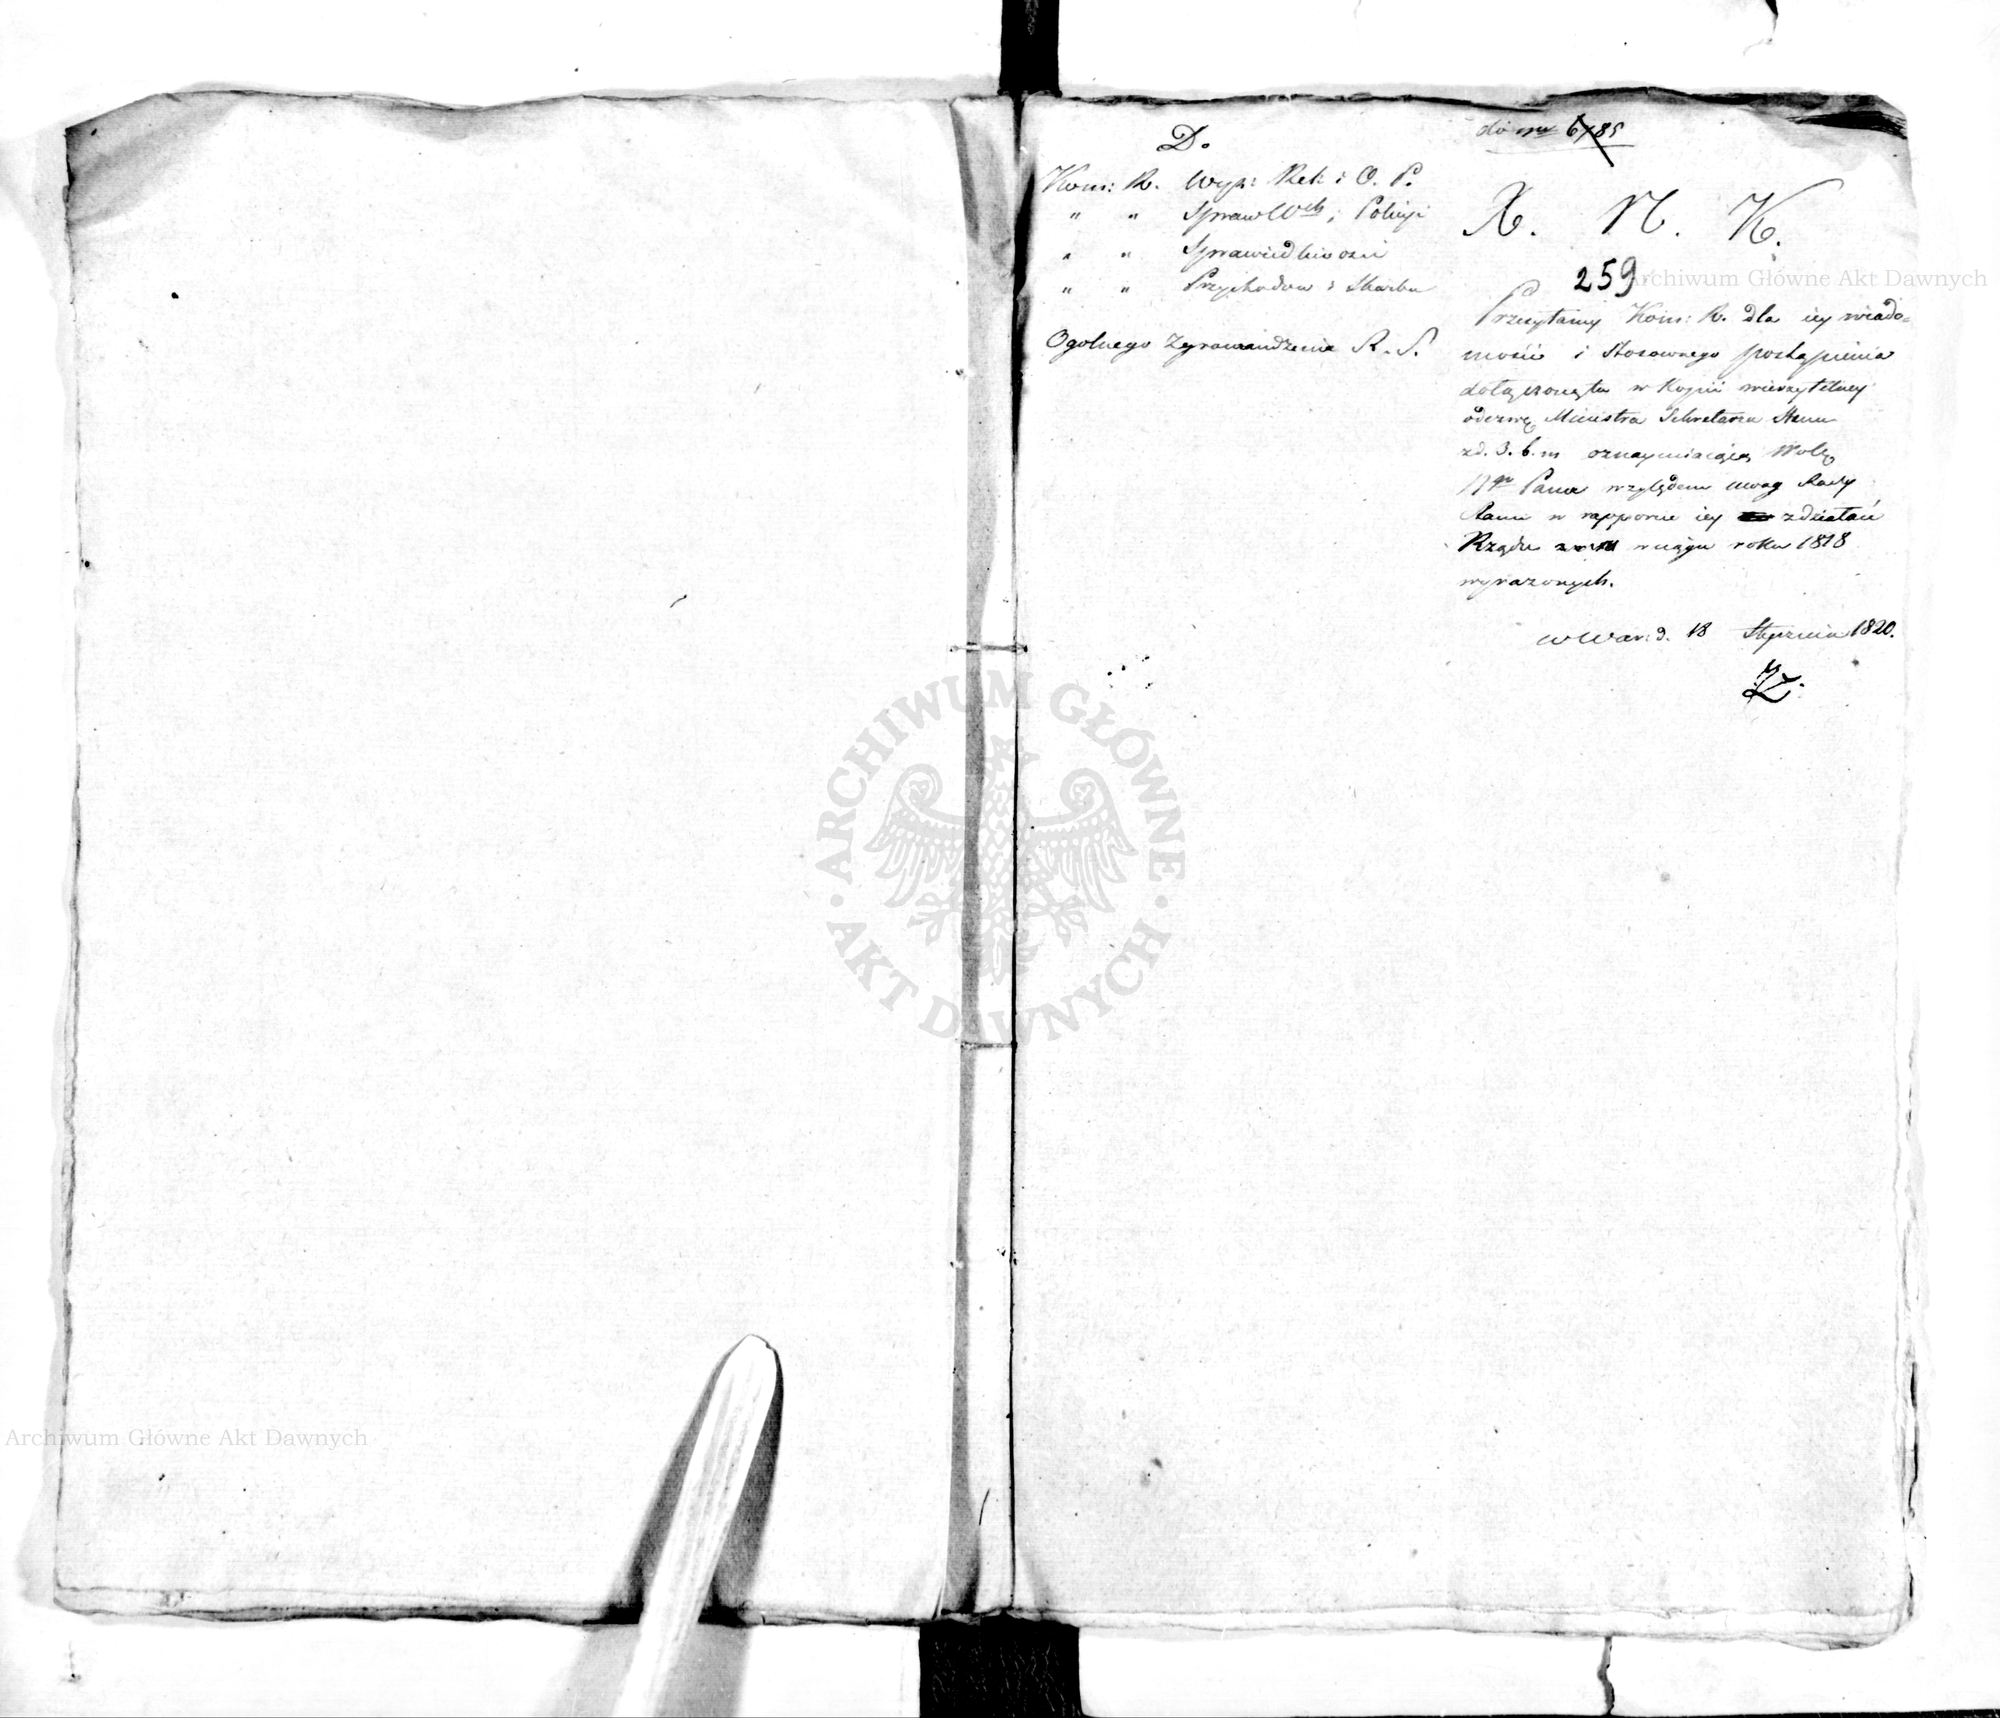 D.
Kom: R. Wyzn: Rel: i O. P.
" " Spraw Wch i Policyi
" " Sprawiedliwości
" " Przychodow i Skarbu
Ogolnego Zgromadzenia R. S.
do nru 6785
X. N. K.
259
Przesyłamy Kom: R. dla iey wiado=
mości i stosownego postąpienia
dołączoną tu w Kopii wierzytelney
odezwę Ministra Sekretarza Stanu
z d. 3. b. m oznaymiaiącą Wolę
N. Pana względem uwag Rady
Stanu w rapporcie iey z działań
Rządu w ciągu roku 1818
wyrażonych.
w War: d. 18 Stycznia 1820.
Archiwum Główne Akt Dawnych
ARCHIWUM GŁÓWNE
AKT DAWNYCH
Archiwum Główne Akt Dawnych